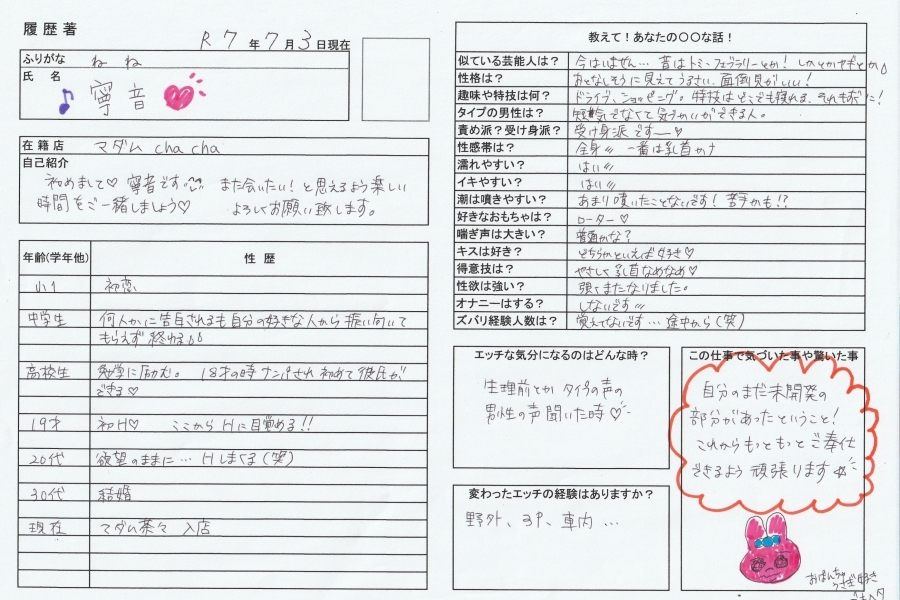 履歴著
R 7 年 7 月 3 日現在
ふりがな ねね
氏名 寧音
在籍店 マダム cha cha
自己紹介
初めまして♡ 寧音です また会いたい！と思えるよう楽しい
時間をご一緒しましょう♡ よろしくお願い致します。
年齢(学年他) 性歴
小1 初恋
中学生 何人かに告白されるも自分の好きな人から振り向いて
もらえず終わる
高校生 勉学に励む。 18才の時ナンパされ初めて彼氏が
できる♡
19才 初H♡ ここからHに目覚める!!
20代 欲望のままに… Hしまくる(笑)
30代 結婚
現在 マダム茶々 入店
教えて！あなたの〇〇な話！
似ている芸能人は？ 今はいません… 昔はトミーフェブラリーとか！
性格は？ おとなしそうに見えてうるさい、面倒見がいい！
趣味や特技は何？ ドライブ、ショッピング。特技はどこでも寝れる、
タイプの男性は？ 短気でなくて気づかいができる人。
責め派？受け身派？ 受け身派です
性感帯は？ 全身 一番は乳首かナ
濡れやすい？ はい
イキやすい？ はい
潮は噴きやすい？ あまり噴いたことないです！苦手かも!?
好きなおもちゃは？ ローター♡
喘ぎ声は大きい？ 普通かな？
キスは好き？ どちらかといえば好き♡
得意技は？ やさしく乳首なめなめ♡
性欲は強い？ 強くまたなりました。
オナニーはする？ しないです
ズバリ経験人数は？ 覚えてないです… 途中から(笑)
エッチな気分になるのはどんな時？
生理前とか タイプの声の
男性の声聞いた時♡
変わったエッチの経験はありますか？
野外、3P、車内…
この仕事で気づいた事や驚いた事
自分のまだ未開発の
部分があったということ！
これからもっともっとご奉仕
できるよう頑張ります☆
おぱんちゅ
うさぎ好き